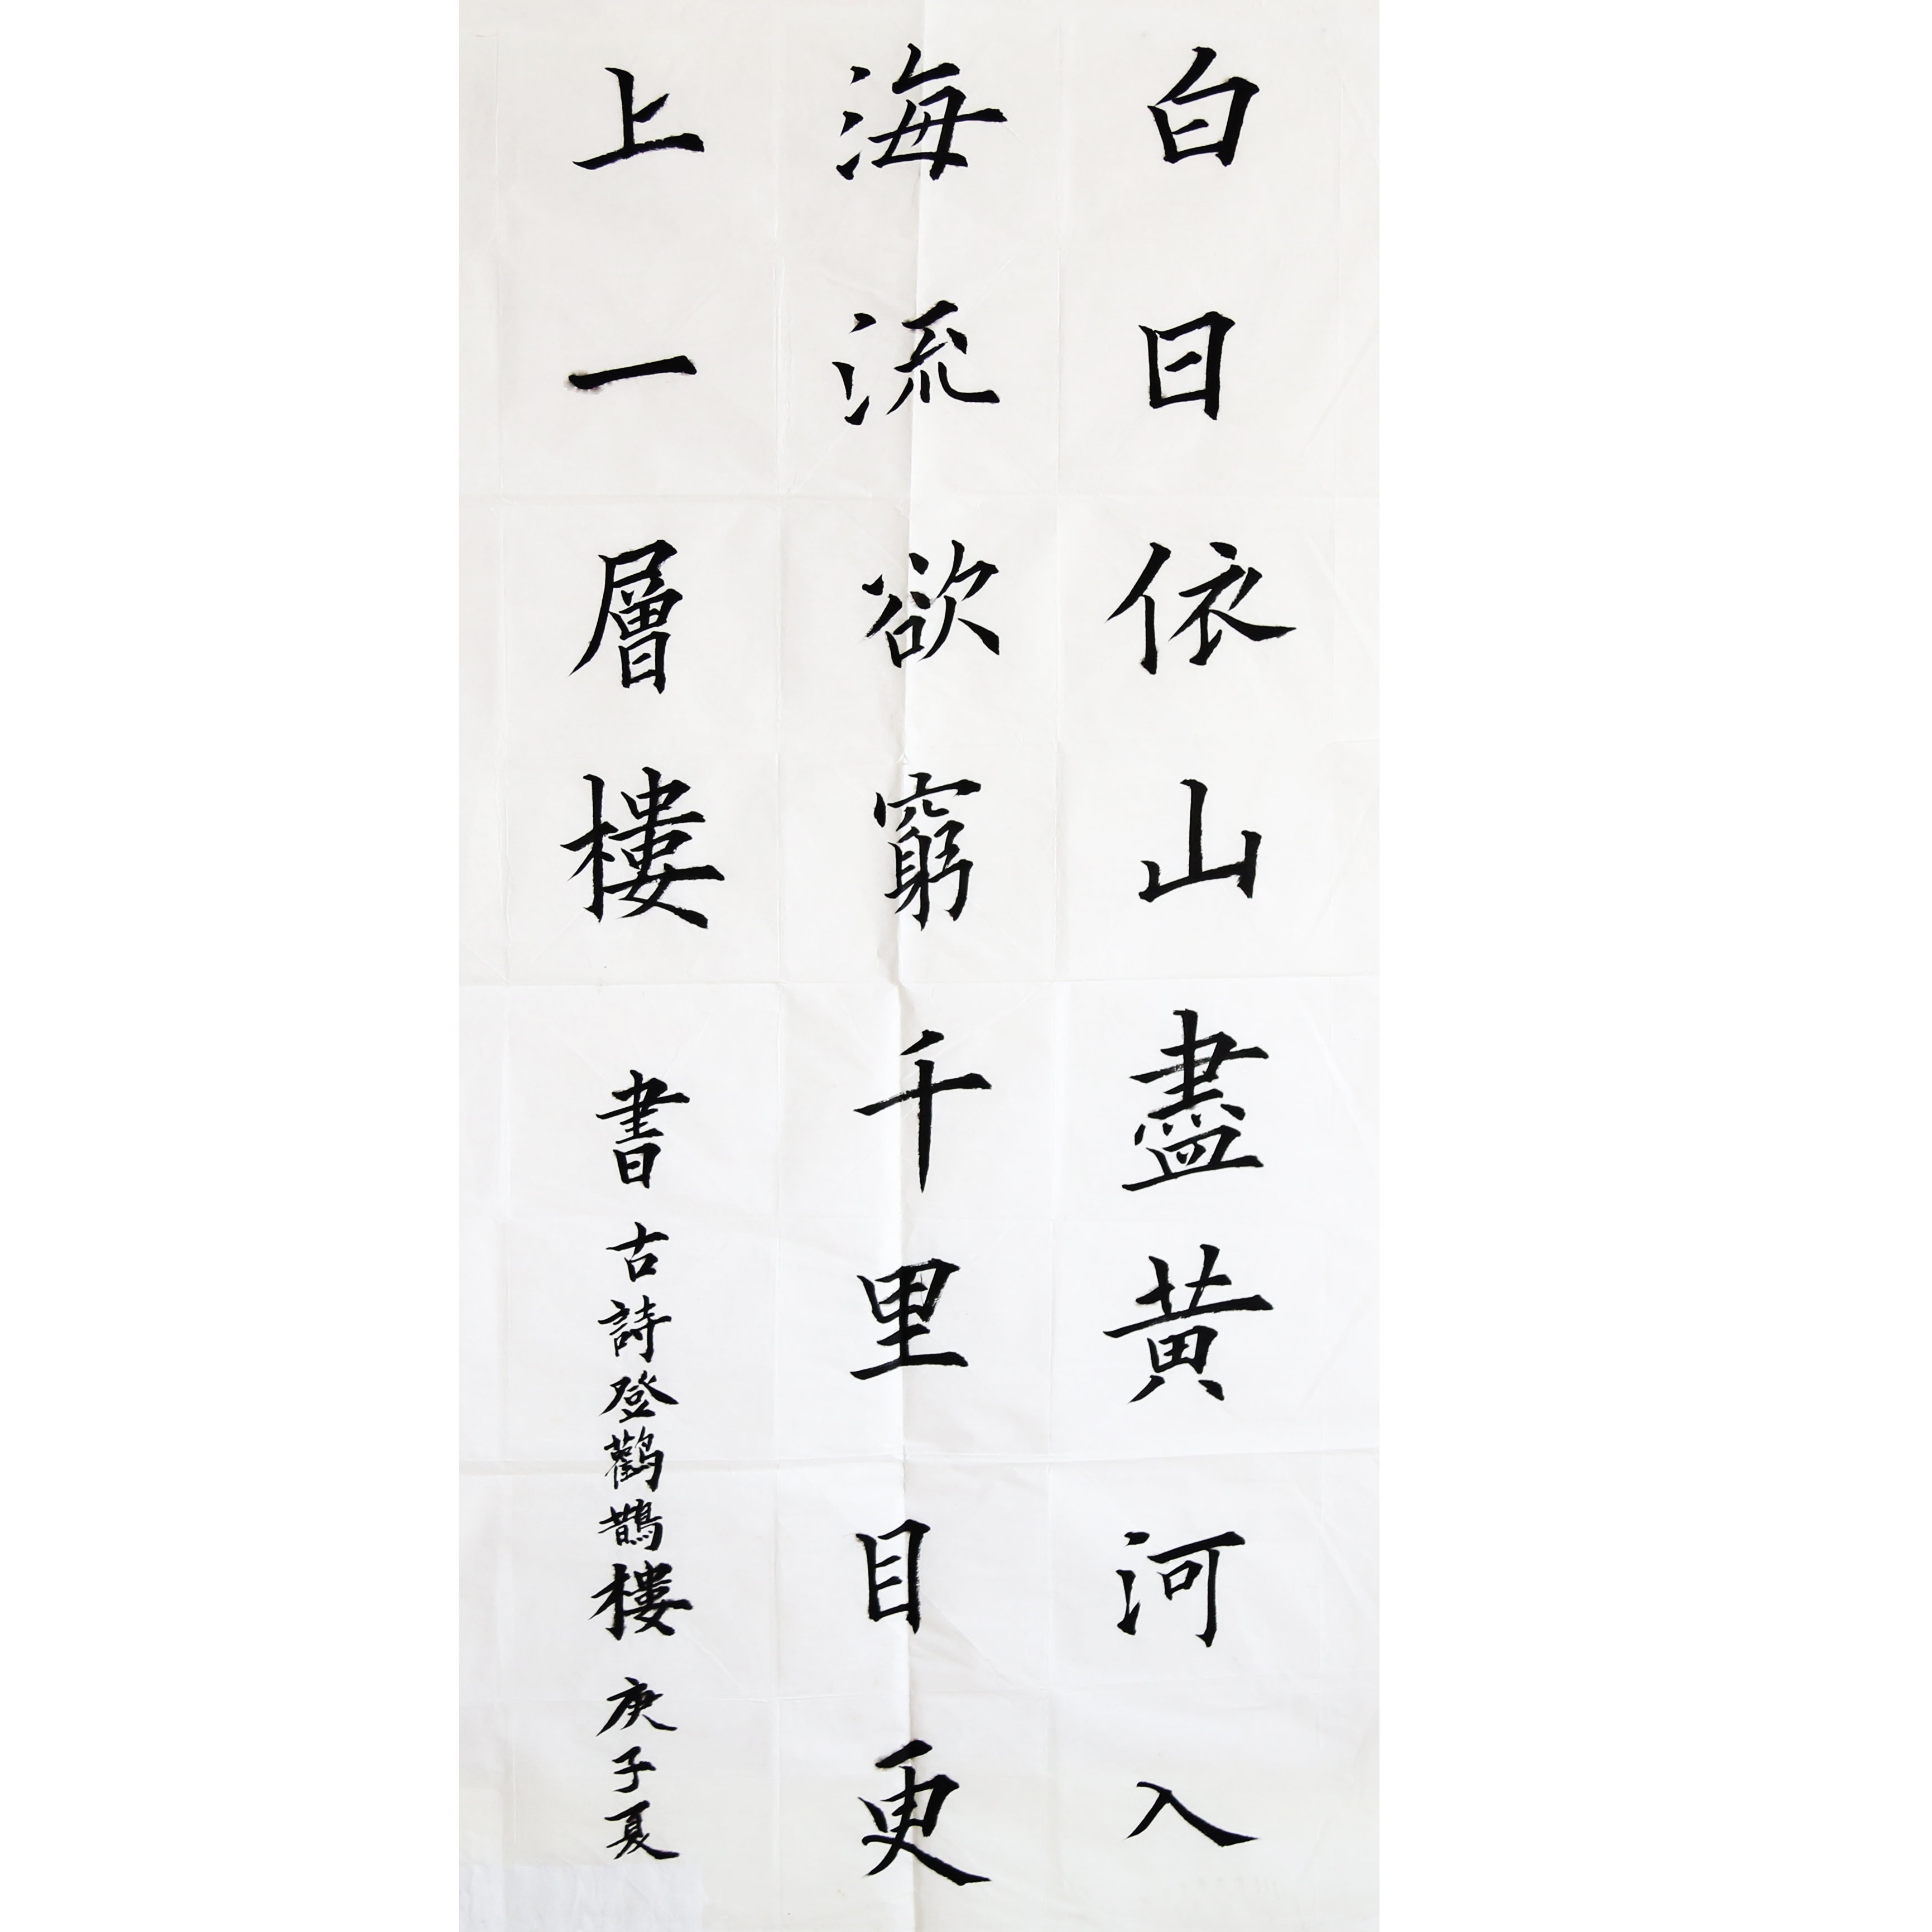 白日依山盡黃河入
海流欲窮千里目更
上一層樓 書古詩登鸛鵲樓 庚子夏